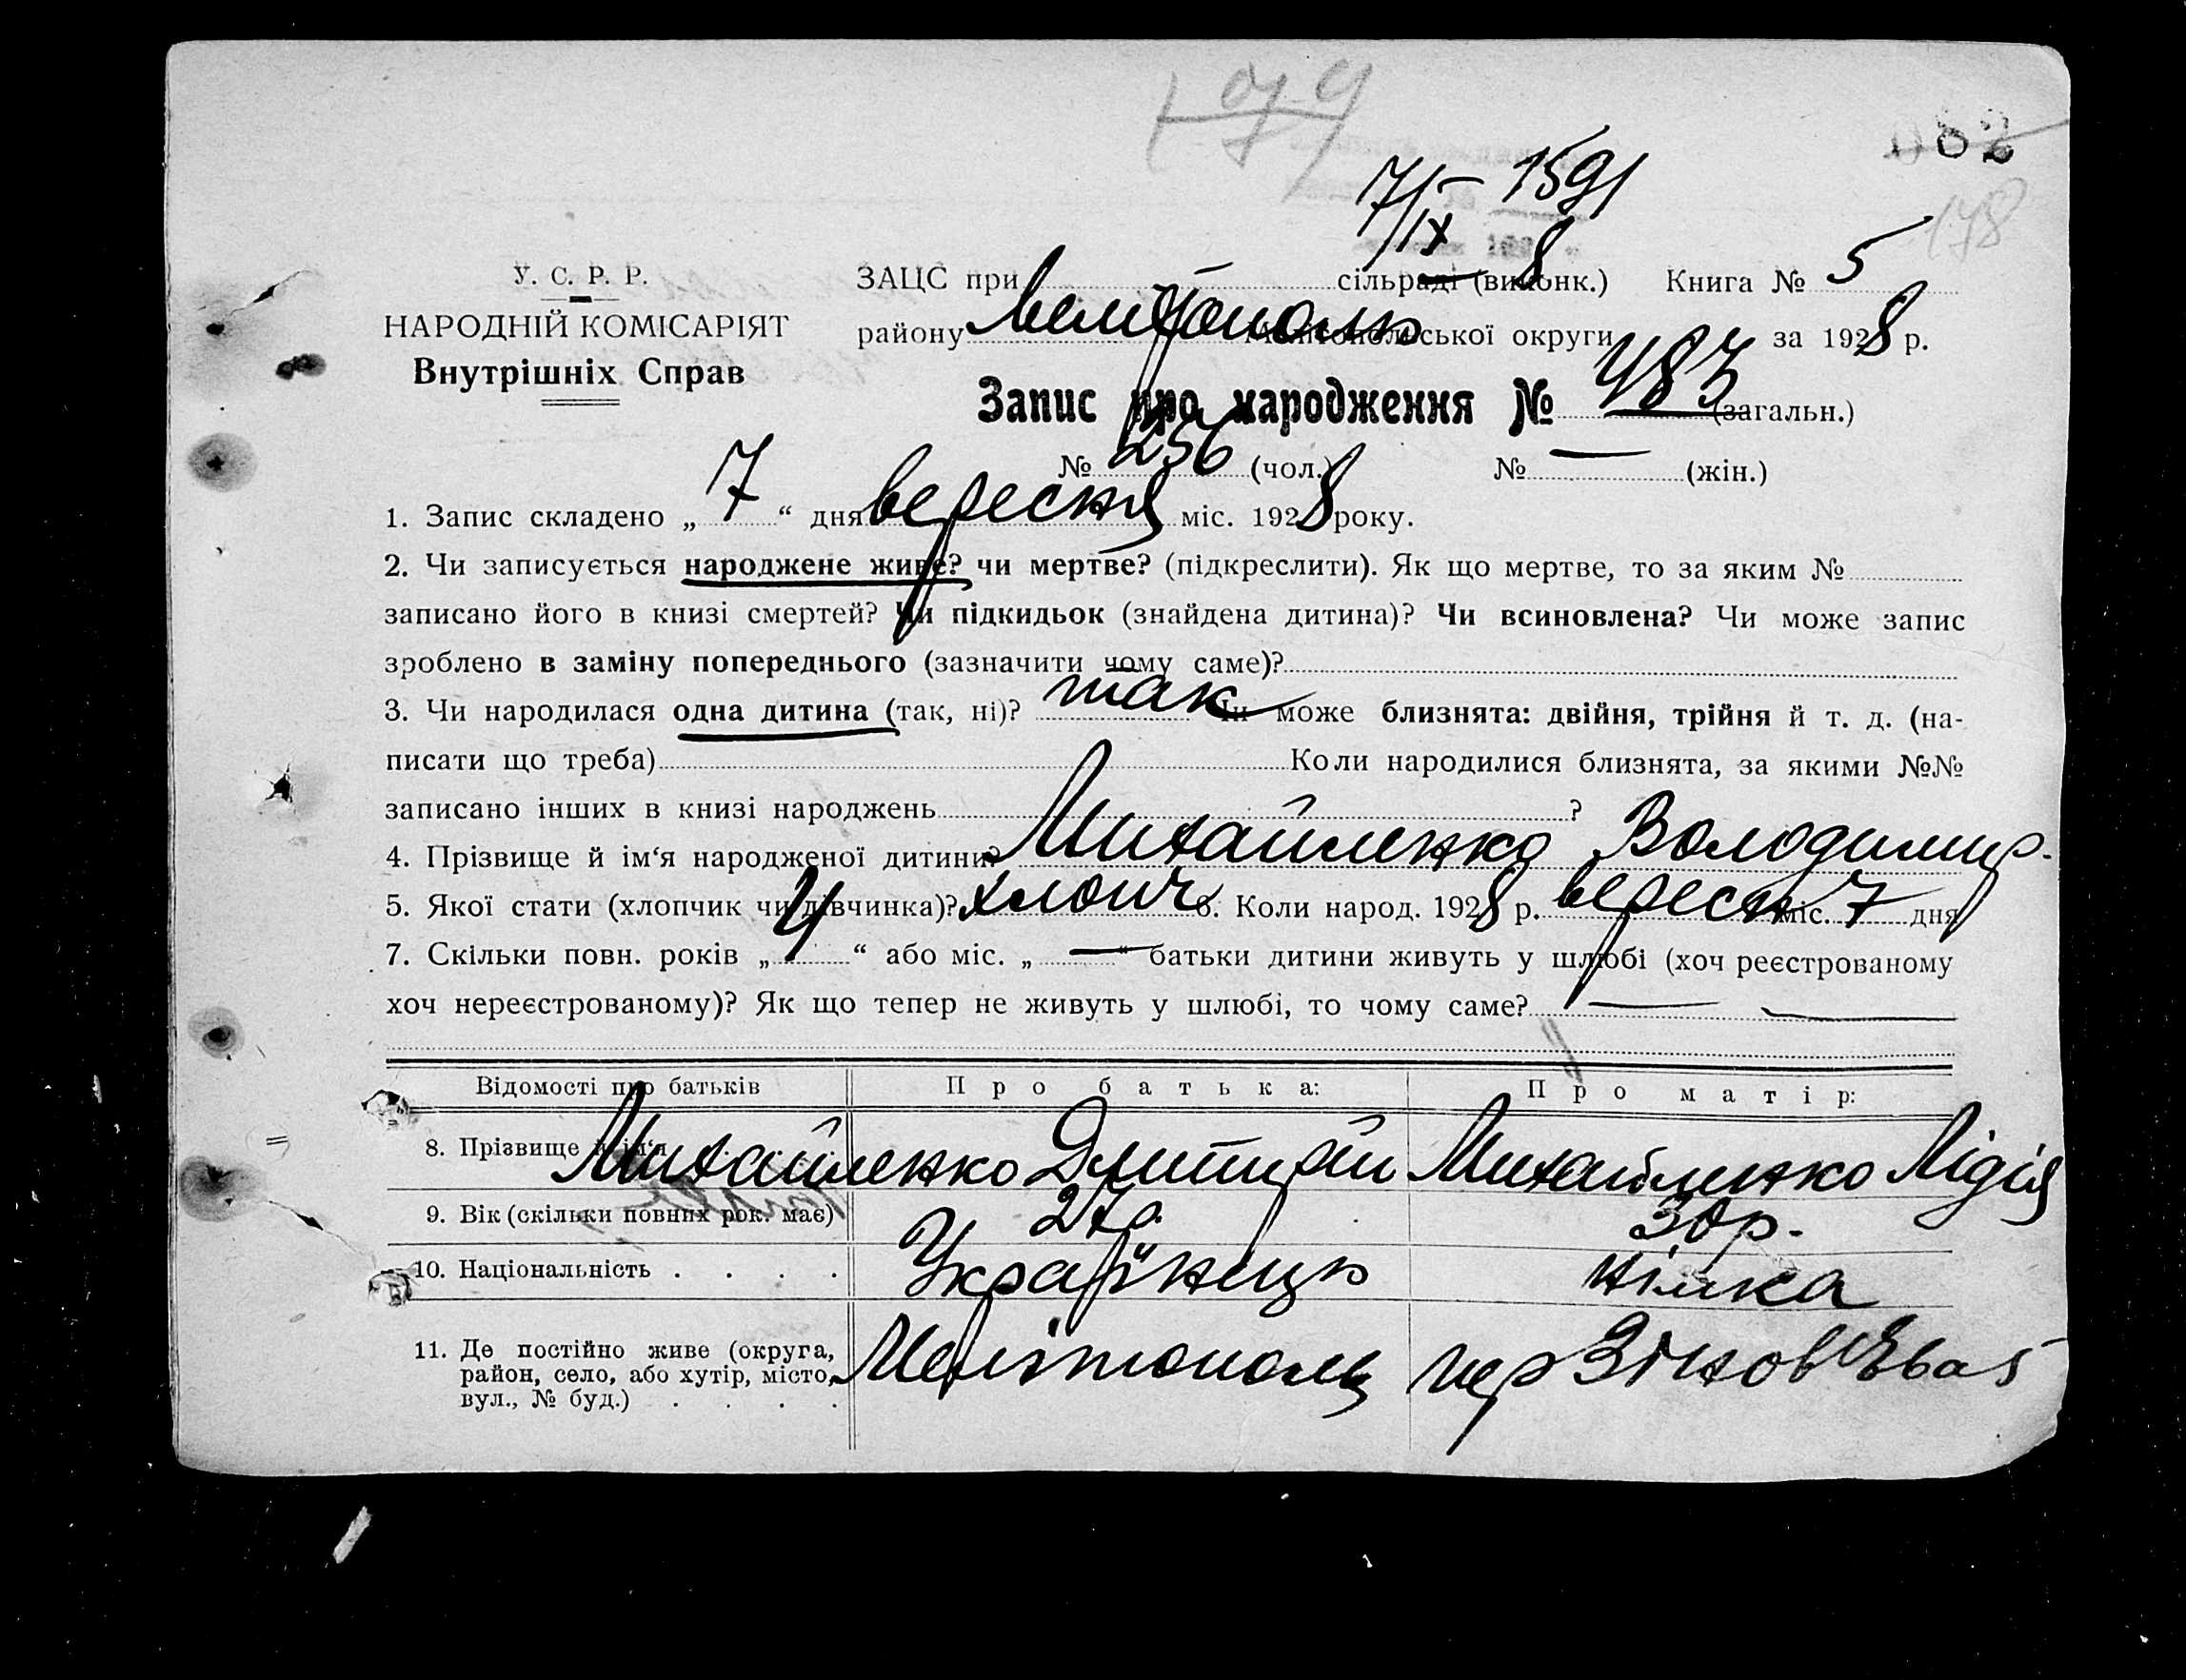 182
7/IX 1591
178
У. С. Р. Р. ЗАЦС при сільраді (виконк.) Книга № 5
НАРОДНІЙ КОМІСАРІЯТ району Мелітополь Мелітопольської округи за 1928 р.
Внутрішніх Справ
Запис про народження № 483 (загальн.)
№ 256 (чол.) № — (жін.)
1. Запис складено „ 7 “ дня вересня міс. 1928 року.
2. Чи записується народжене живе? чи мертве? (підкреслити). Як що мертве, то за яким №
записано його в книзі смертей? Чи підкидьок (знайдена дитина)? Чи всиновлена? Чи може запис
зроблено в заміну попереднього (зазначити чому саме)?
3. Чи народилася одна дитина (так, ні)? так Чи може близнята: двійня, трійня й т. д. (на-
писати що треба) Коли народилися близнята, за якими №№
записано інших в книзі народжень ?
4. Прізвище й ім‘я народженої дитини? Михайленко Володимир.
5. Якої стати (хлопчик чи дівчинка)? хлопч 6. Коли народ. 1928 р. вересн міс. 7 дня
7. Скільки повн. років „ 4 “ або міс. „ — “ батьки дитини живуть у шлюбі (хоч реєстрованому
хоч нереєстрованому)? Як що тепер не живуть у шлюбі, то чому саме? — —
Відомості про батьків Про батька: Про матір:
8. Прізвище й ім‘я Михайленко Дмитрій Михайленко Лідія
9. Вік (скільки повних рок. має) 27р. 30р.
10. Національність . . . . Українець німка
11. Де постійно живе (округа,
район, село, або хутір, місто,
вул., № буд.) . . . . Мелітополь пер Зіновʼєва 5